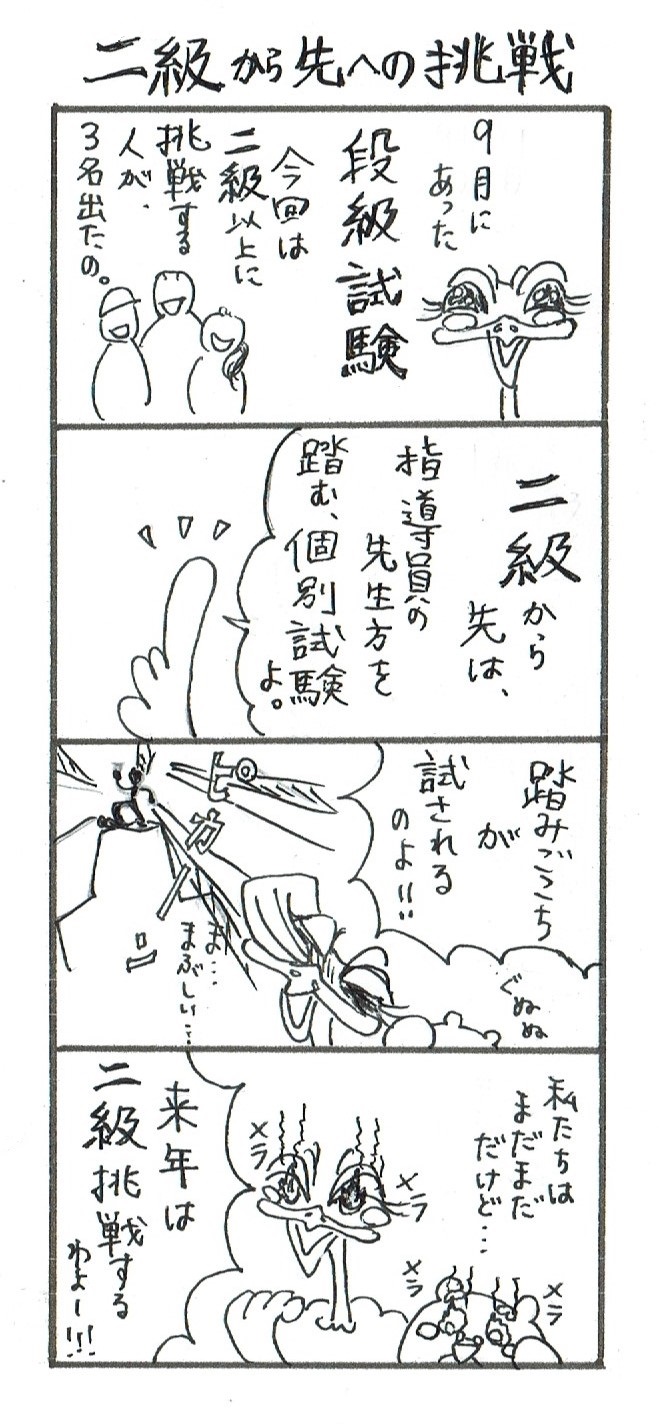 二級から先への挑戦
9月に
あった
段級試験
今回は
二級以上に
挑戦する
人が、
3名出たの。
二級から
先は、
指導員の
先生方を
踏む、
個別試験
よ。
踏みごこち
が
試される
のよ!!
ぐぬぬ
ま…
まぶしい…
私たちは
まだまだ
だけど…
メラ
メラ
メラ
メラ
来年は
二級挑戦する
わよー!!!